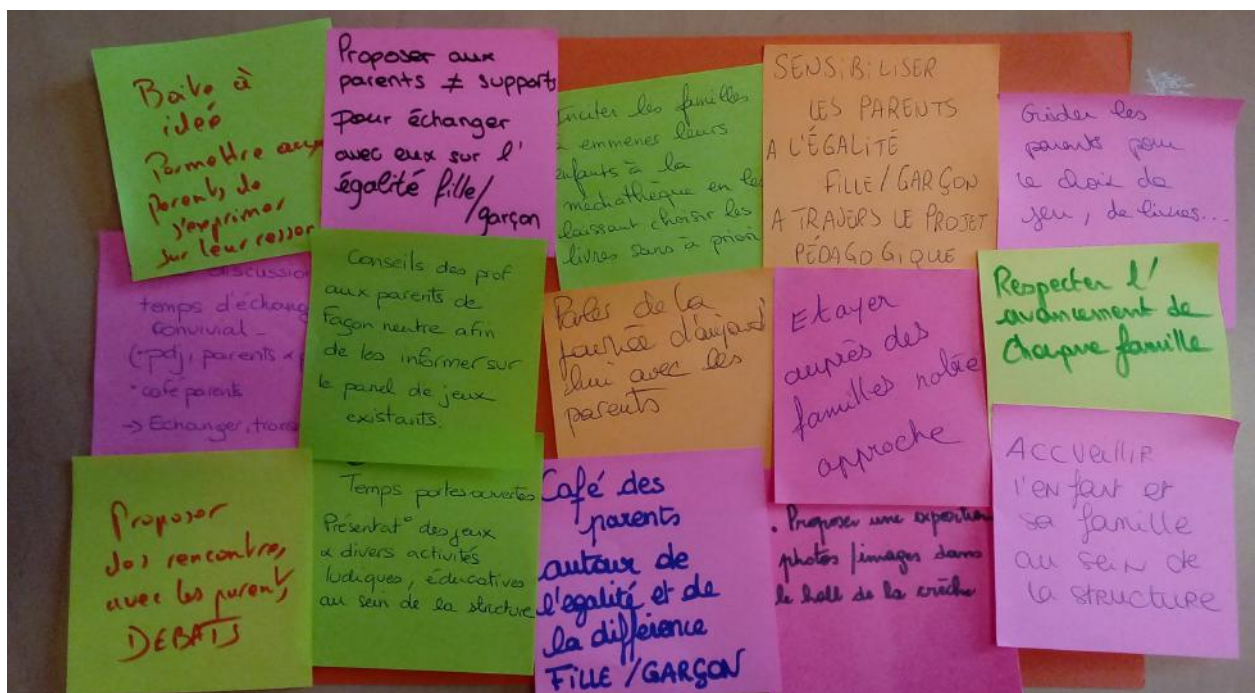 Boite à
idée
Permettre aux
parents de
s'exprimer
sur leur
Proposer aux
parents ≠ supports
pour échanger
avec eux sur l'
égalité fille/
garçon
Inciter les familles
à emmener leurs
enfants à la
médiathèque en les
laissant choisir les
livres sans à priori
SENSIBILISER
LES PARENTS
A L'ÉGALITÉ
FILLE/GARÇON
A TRAVERS LE PROJET
PÉDAGOGIQUE
Guider les
parents pour
le choix de
jeu, de livres...
discussion
temps d'échang
convivial -
(pdj, parents
• café parents
→ Echanger, trans
Conseils des prof
aux parents de
façon neutre afin
de les informer sur
le panel de jeux
existants.
Parler de la
journée d'aujourd'
hui avec les
parents
Etayer
auprès des
familles notre
approche
Respecter l'
avancement de
chaque famille
Proposer
des rencontres
avec les parents
DEBATS
Temps portes ouvertes
Présentat° des jeux
& divers activités
ludiques, éducatives
au sein de la structure
Café des
parents
autour de
l'egalité et de
la différence
FILLE/GARÇON
• Proposer une exposition
photos/images dans
le hall de la crèche
ACCUEILLIR
l'enfant et
sa famille
au sein de
la structure